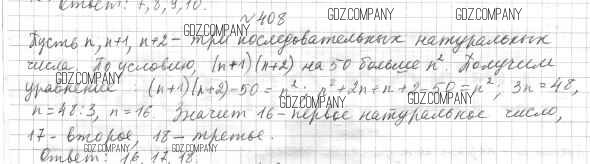 Ответ: 7, 8, 9, 10.
№408
GDZ.COMPANY GDZ.COMPANY
Пусть n, n+1, n+2 – три последовательных натуральных
GDZ.COMPANY
числа. По условию, (n+1)(n+2) на 50 больше n². Получим
GDZ.COMPANY
уравнение: (n+1)(n+2)-50 = n²; n²+2n+n+2-50=n²; 3n=48,
GDZ.COMPANY GDZ.COMPANY
n=48:3, n=16. Значит 16 – первое натуральное число,
17 – второе, 18 – третье.
GDZ.COMPANY
Ответ: 16, 17, 18.